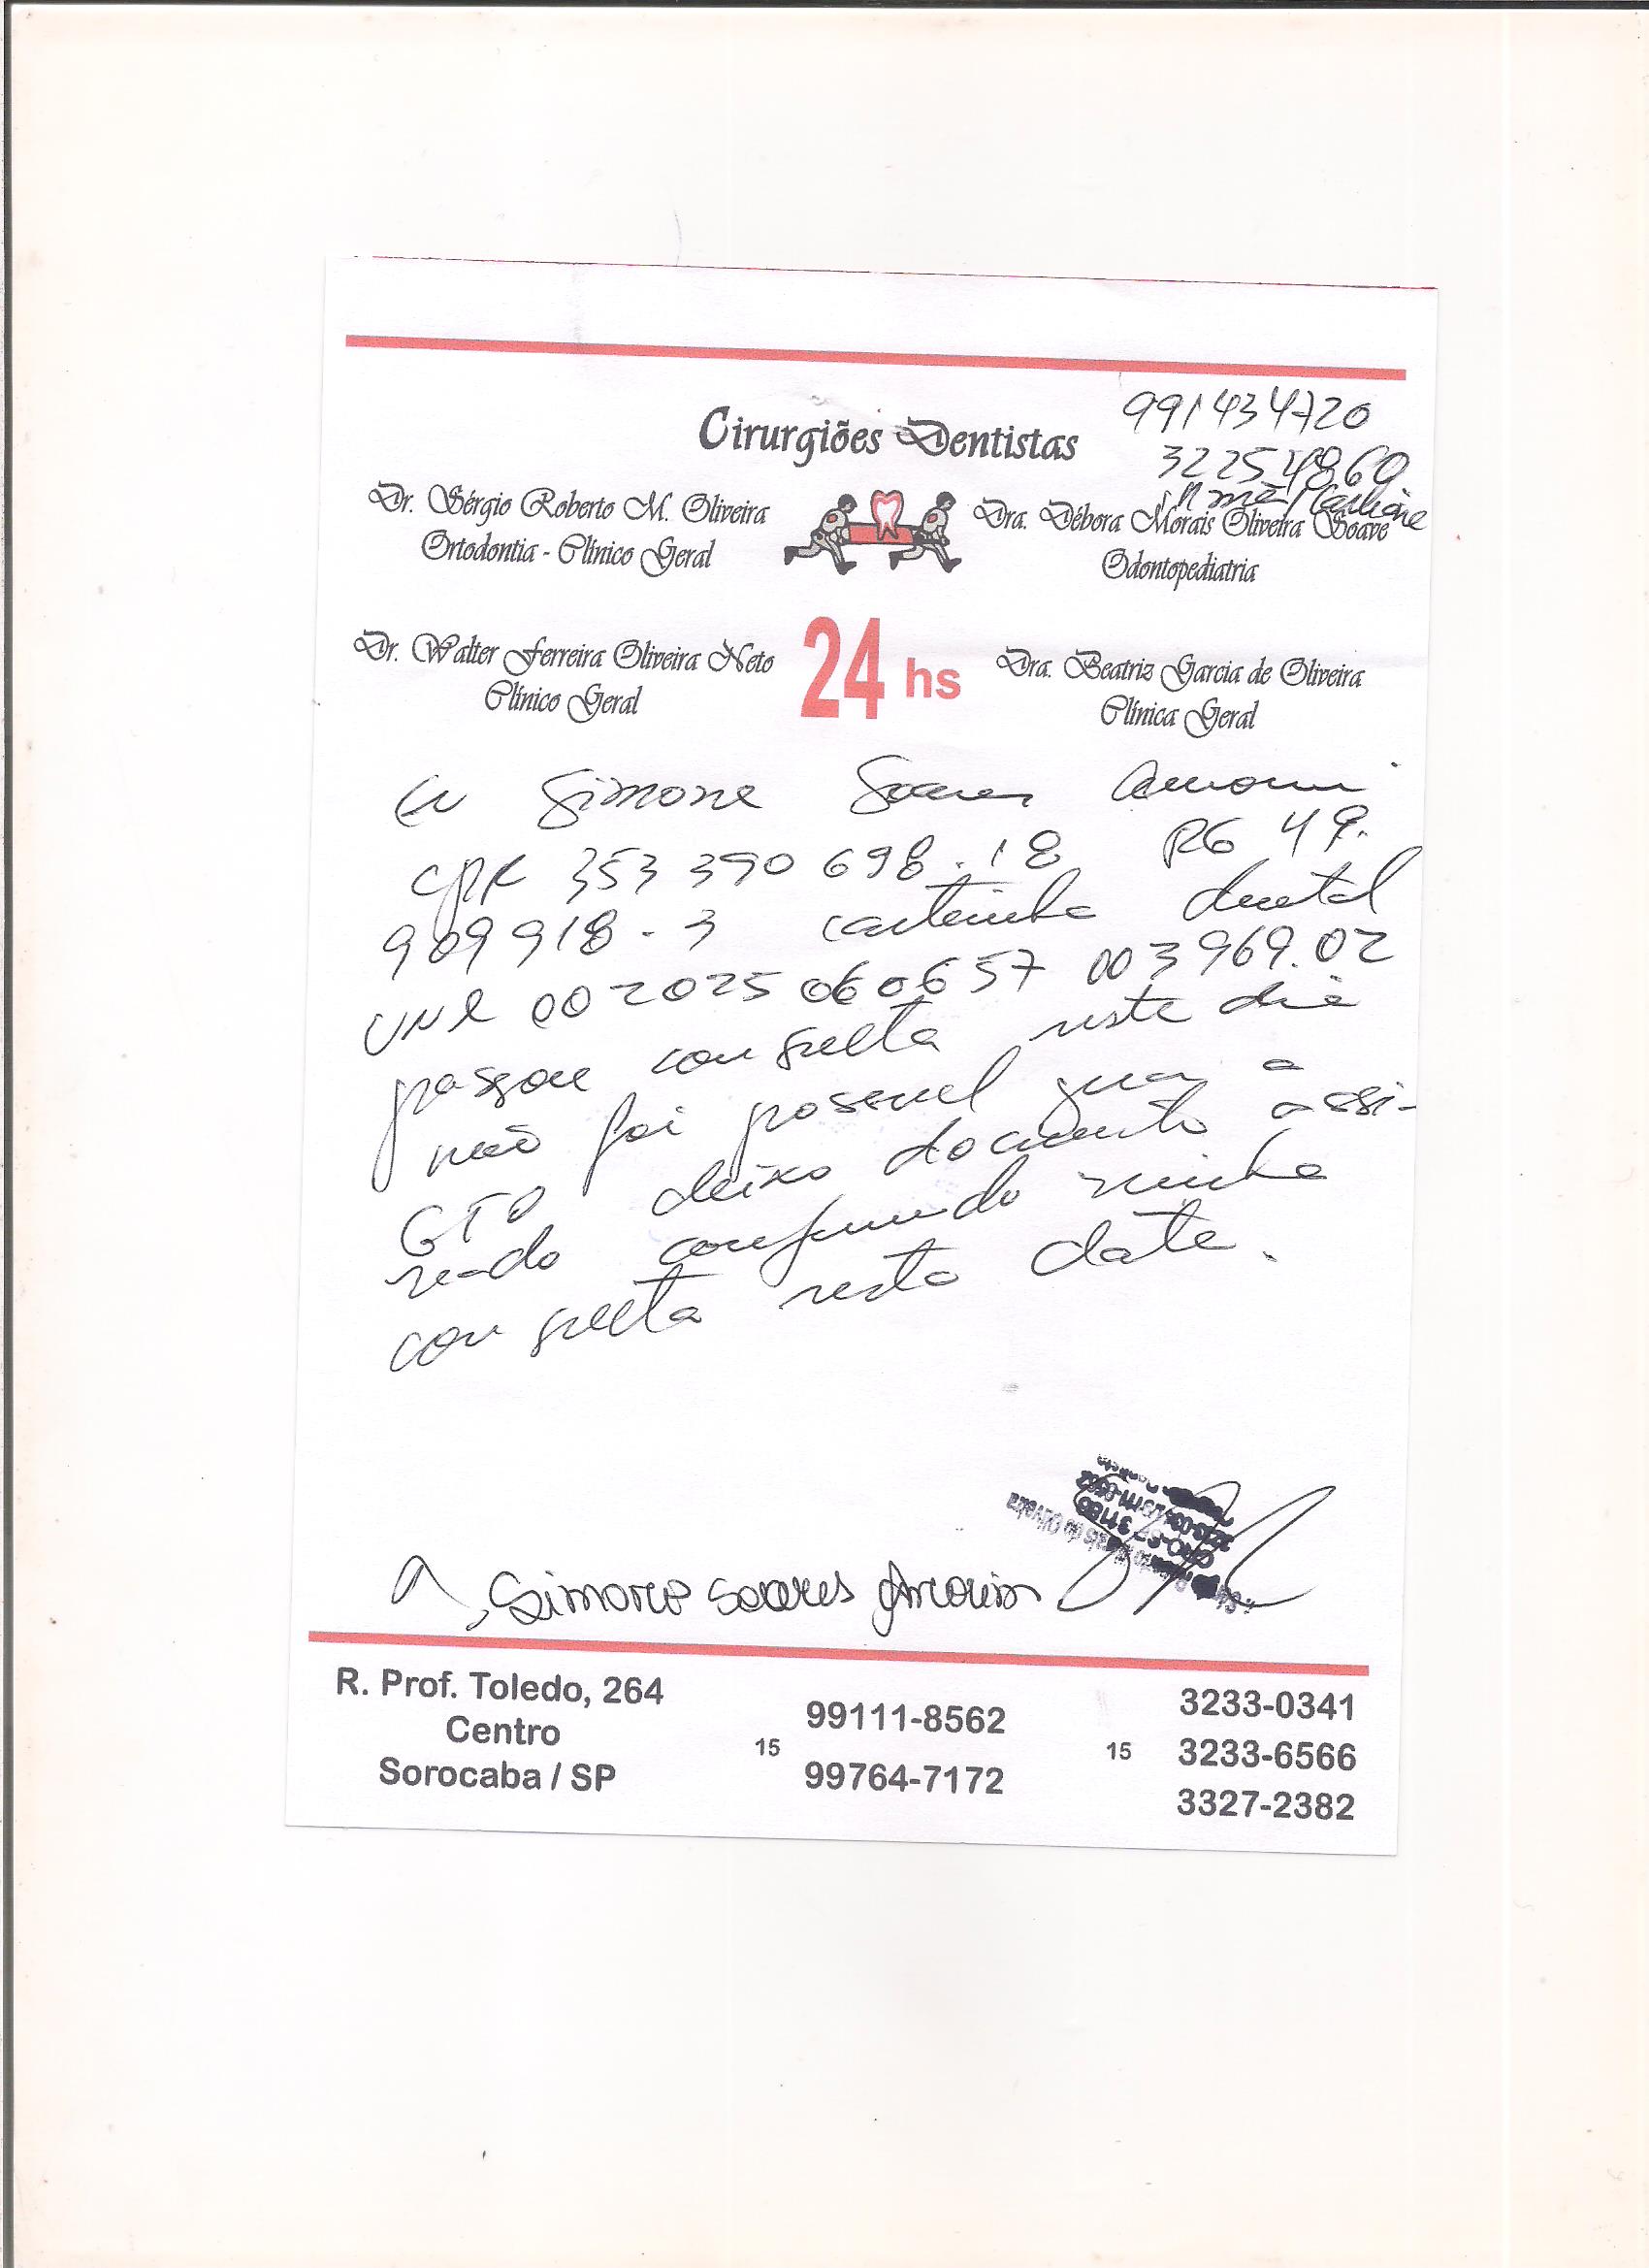 991434720
Cirurgiões Dentistas
32254860
Dr. Sérgio Roberto M. Oliveira
Ortodontia - Clínico Geral
Dra. Débora Morais Oliveira Soave
Odontopediatria
Dr. Walter Ferreira Oliveira Neto
Clínico Geral
24 hs
Dra. Beatriz Garcia de Oliveira
Clínica Geral
Eu Simone Soares Amorim
CPF 353 390 698.18 RG 49.
909918-3 carteirinha dental
UNI 00 2025 060657 003969.02
passou consulta neste dia
não foi possivel gerar a
GTO deixo documento assi-
nado confirmando minha
consulta nesta data.
Simone Soares Amorim
CRO-SP 31180
R. Prof. Toledo, 264
Centro
Sorocaba / SP
15 99111-8562
99764-7172
15 3233-0341
3233-6566
3327-2382